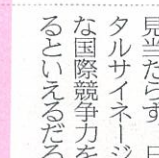 見当たらず
タルサイネージ
な国際競争力を
るといえるだろ